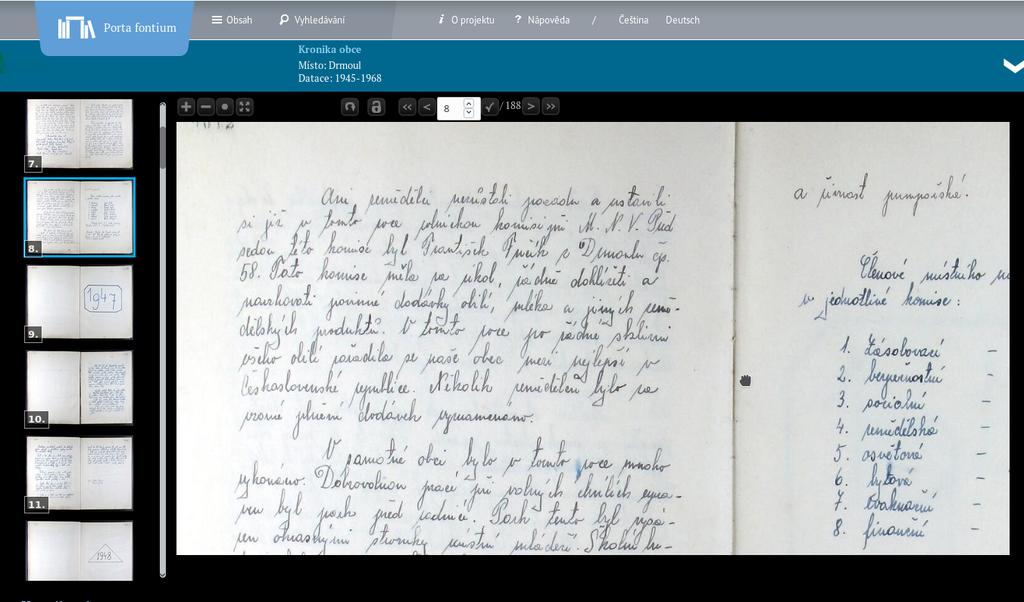 Porta fontium
Obsah
Vyhledávání
i O projektu
? Nápověda
/
Čeština
Deutsch
Kronika obce
Místo: Drmoul
Datace: 1945-1968
8
/ 188
7.
8.
9.
1947
10.
11.
1948
Ani zemědělci nezůstali pozadu a ustavili
si již v tomto roce rolnickou komisi při M. N. V. Před
sedou této komise byl František Finěk z Drmoulu čp.
58. Tato komise měla za úkol, řádně dohlížeti a
naukovati povinné dodávky obilí, mléka a jiných země-
dělských produktů. V tomto roce po řádné sklizni
všeho obilí zařadila se naše obec mezi nejlepší v
Československé republice. Několik zemědělců bylo za
vzorné plnění dodávek vyznamenáno.
V samotné obci bylo v tomto roce mnoho
vykonáno. Dobrovolnou prací při volných chvílích upra-
ven byl park před radnicí. Park tento byl vysá-
zen okrasnými stromky místní mládeží. Školní bu-
a živnost pumpařská.
Členové místního
v jednotlivé komise:
1. Zásobovací –
2. bezpečnostní –
3. sociální –
4. zemědělská –
5. osvětová –
6. bytová –
7. evakuační –
8. finanční –